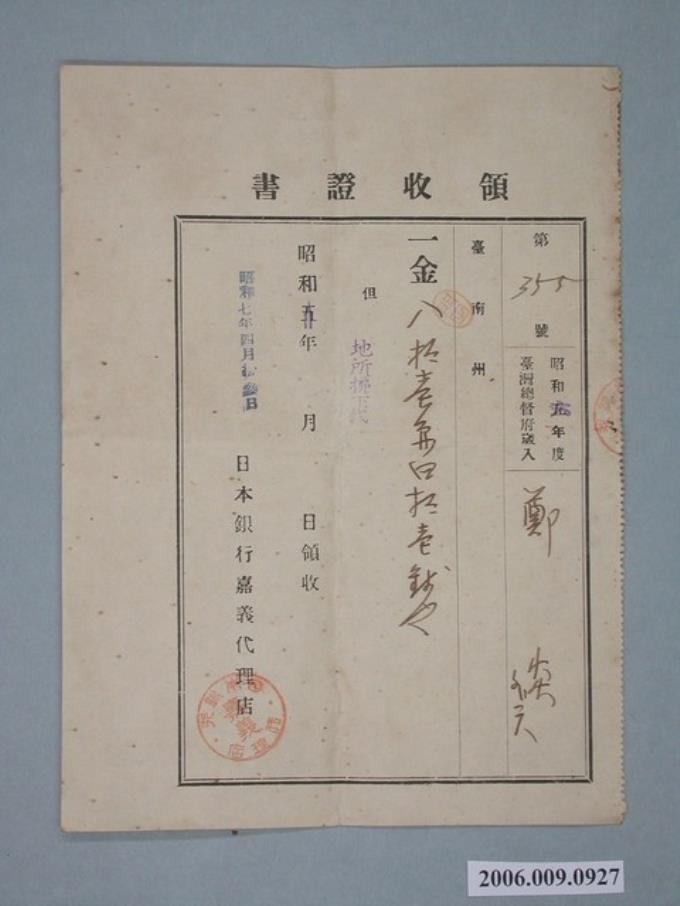 領收證書
第355號
昭和五年度
臺灣總督府歲入
鄭
臺南州
一金八拾壹円四拾壹錢也
但
地所拂下代
昭和五年 月 日領收
昭和七年四月拾參日
日本銀行嘉義代理店
嘉義
2006.009.0927